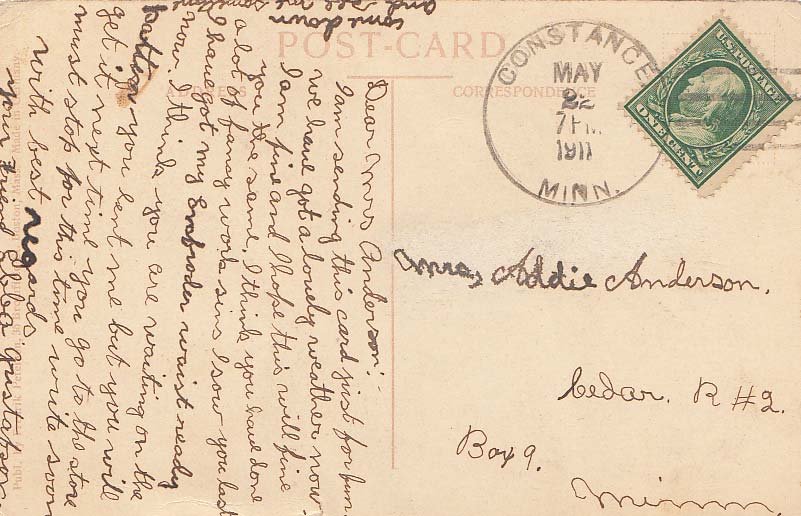 POST-CARD
ADDRESS
CORRESPONDENCE
CONSTANCE
MAY
22
7PM
1911
MINN.
U.S. POSTAGE
ONE CENT
Mrs, Addie Anderson.
Cedar. R #2.
Box 9.
Minn.
Dear Mrs Anderson:-
I am sending this card just for fun.
we have got a lovely weather now.
I am fine and I hope this will fine
you the same, I think you have done
a lot of fancy work sins I sow you last
I have got my Embroder waist ready
now. I think you are waiting on the
pattern you lent me but you will
get it next time you go to the store
must stop for this time write soon
with best regards
your Friend Ebba Gustafson.
come down
and see me sometime
Made in Germany